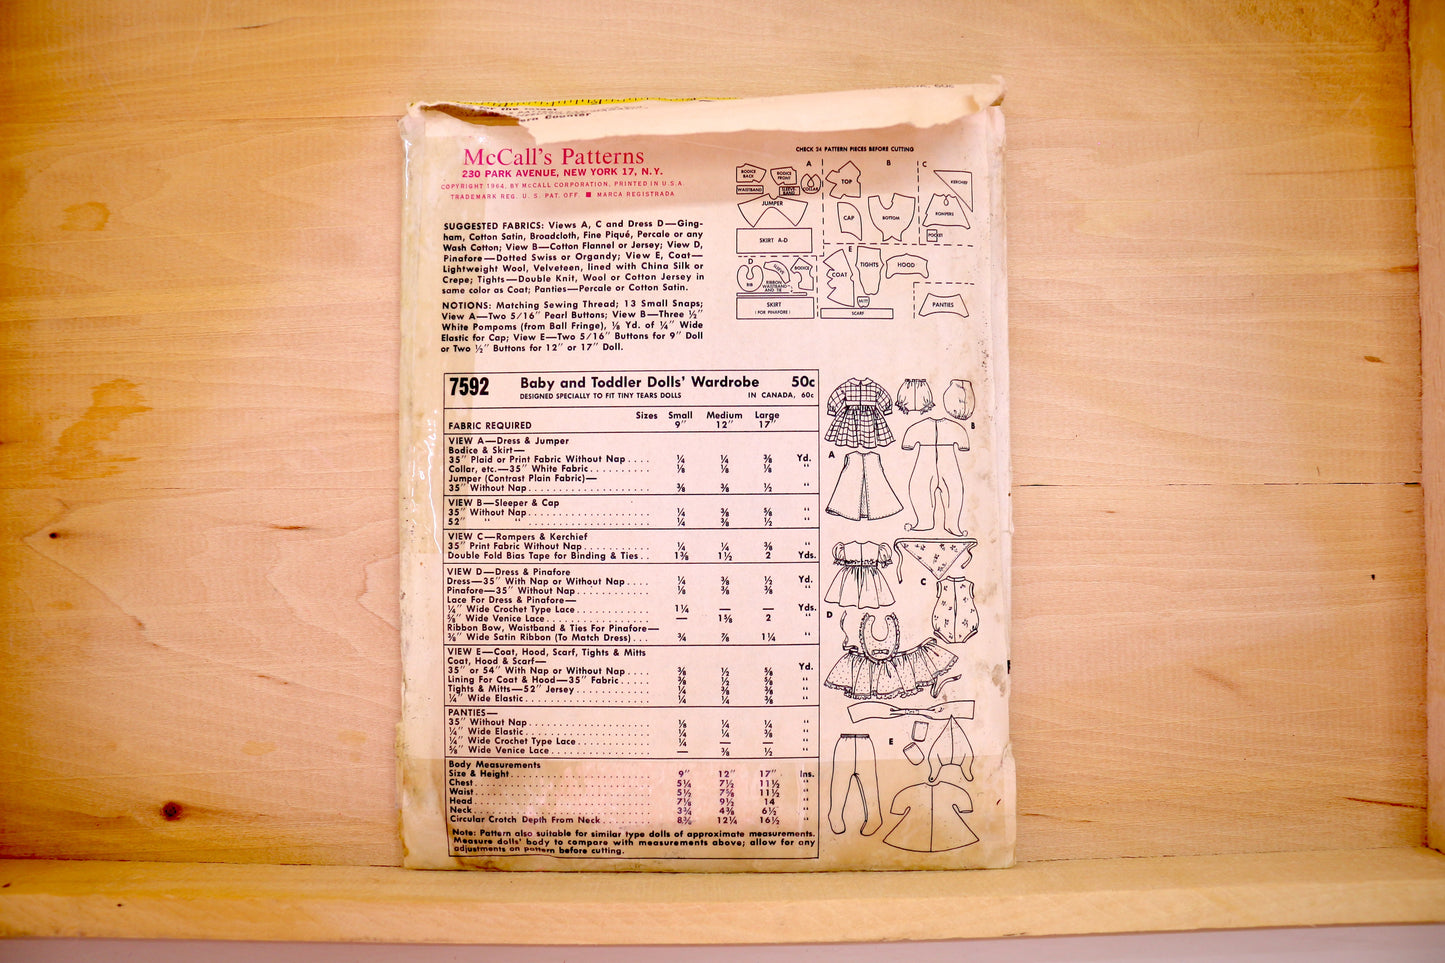 for the latest
ern Counter
60c
McCall's Patterns
230 PARK AVENUE, NEW YORK 17, N.Y.
COPYRIGHT 1964, BY McCALL CORPORATION, PRINTED IN U.S.A.
TRADEMARK REG. U. S. PAT. OFF. ■ MARCA REGISTRADA
SUGGESTED FABRICS: Views A, C and Dress D—Ging-
ham, Cotton Satin, Broadcloth, Fine Piqué, Percale or any
Wash Cotton; View B—Cotton Flannel or Jersey; View D,
Pinafore—Dotted Swiss or Organdy; View E, Coat—
Lightweight Wool, Velveteen, lined with China Silk or
Crepe; Tights—Double Knit, Wool or Cotton Jersey in
same color as Coat; Panties—Percale or Cotton Satin.
NOTIONS: Matching Sewing Thread; 13 Small Snaps;
View A—Two 5/16" Pearl Buttons; View B—Three ½"
White Pompoms (from Ball Fringe), ⅛ Yd. of ¼" Wide
Elastic for Cap; View E—Two 5/16" Buttons for 9" Doll
or Two ½" Buttons for 12" or 17" Doll.
CHECK 24 PATTERN PIECES BEFORE CUTTING
A
BODICE BACK
BODICE FRONT
COLLAR
WAISTBAND
JUMPER
SKIRT A-D
B
TOP
CAP
BOTTOM
C
KERCHIEF
ROMPERS
POCKET
D
BIB
SLEEVE
BODICE
RIBBON WAISTBAND AND TIE
SKIRT
(FOR PINAFORE)
E
COAT
TIGHTS
HOOD
MITT
SCARF
PANTIES
7592 Baby and Toddler Dolls' Wardrobe 50c
DESIGNED SPECIALLY TO FIT TINY TEARS DOLLS IN CANADA, 60c
Sizes Small Medium Large
FABRIC REQUIRED 9" 12" 17"
VIEW A—Dress & Jumper
Bodice & Skirt—
35" Plaid or Print Fabric Without Nap.... ¼ ¼ ⅜ Yd.
Collar, etc.—35" White Fabric.......... ⅛ ⅛ ⅛ "
Jumper (Contrast Plain Fabric)—
35" Without Nap..................... ⅜ ⅜ ½ "
VIEW B—Sleeper & Cap
35" Without Nap..................... ¼ ⅜ ⅝ "
52" " " ..................... ¼ ⅜ ½ "
VIEW C—Rompers & Kerchief
35" Print Fabric Without Nap........... ¼ ¼ ⅜ "
Double Fold Bias Tape for Binding & Ties.. 1⅜ 1½ 2 Yds.
VIEW D—Dress & Pinafore
Dress—35" With Nap or Without Nap.... ¼ ⅜ ½ Yd.
Pinafore—35" Without Nap............. ⅛ ⅜ ⅜ "
Lace For Dress & Pinafore—
¼" Wide Crochet Type Lace............ 1¼ — — Yds.
⅝" Wide Venice Lace.................. — 1⅝ 2 "
Ribbon Bow, Waistband & Ties For Pinafore—
⅜" Wide Satin Ribbon (To Match Dress)... ¾ ⅞ 1¼ "
VIEW E—Coat, Hood, Scarf, Tights & Mitts
Coat, Hood & Scarf—
35" or 54" With Nap or Without Nap.... ⅜ ½ ⅝ Yd.
Lining For Coat & Hood—35" Fabric..... ⅜ ½ ⅝ "
Tights & Mitts—52" Jersey............. ¼ ⅜ ⅜ "
¼" Wide Elastic...................... ¼ ¼ ⅜ "
PANTIES—
35" Without Nap..................... ⅛ ¼ ¼ "
¼" Wide Elastic...................... ¼ ¼ ⅜ "
¼" Wide Crochet Type Lace............ ¼ — — "
⅝" Wide Venice Lace.................. — ⅜ ½ "
Body Measurements
Size & Height........................ 9" 12" 17" Ins.
Chest................................ 5¼ 7½ 11½ "
Waist................................ 5½ 7⅝ 11½ "
Head................................. 7⅛ 9½ 14 "
Neck................................. 3¾ 4⅜ 6½ "
Circular Crotch Depth From Neck........ 8⅜ 12¼ 16½ "
Note: Pattern also suitable for similar type dolls of approximate measurements.
Measure dolls' body to compare with measurements above; allow for any
adjustments on pattern before cutting.
A
B
C
D
E